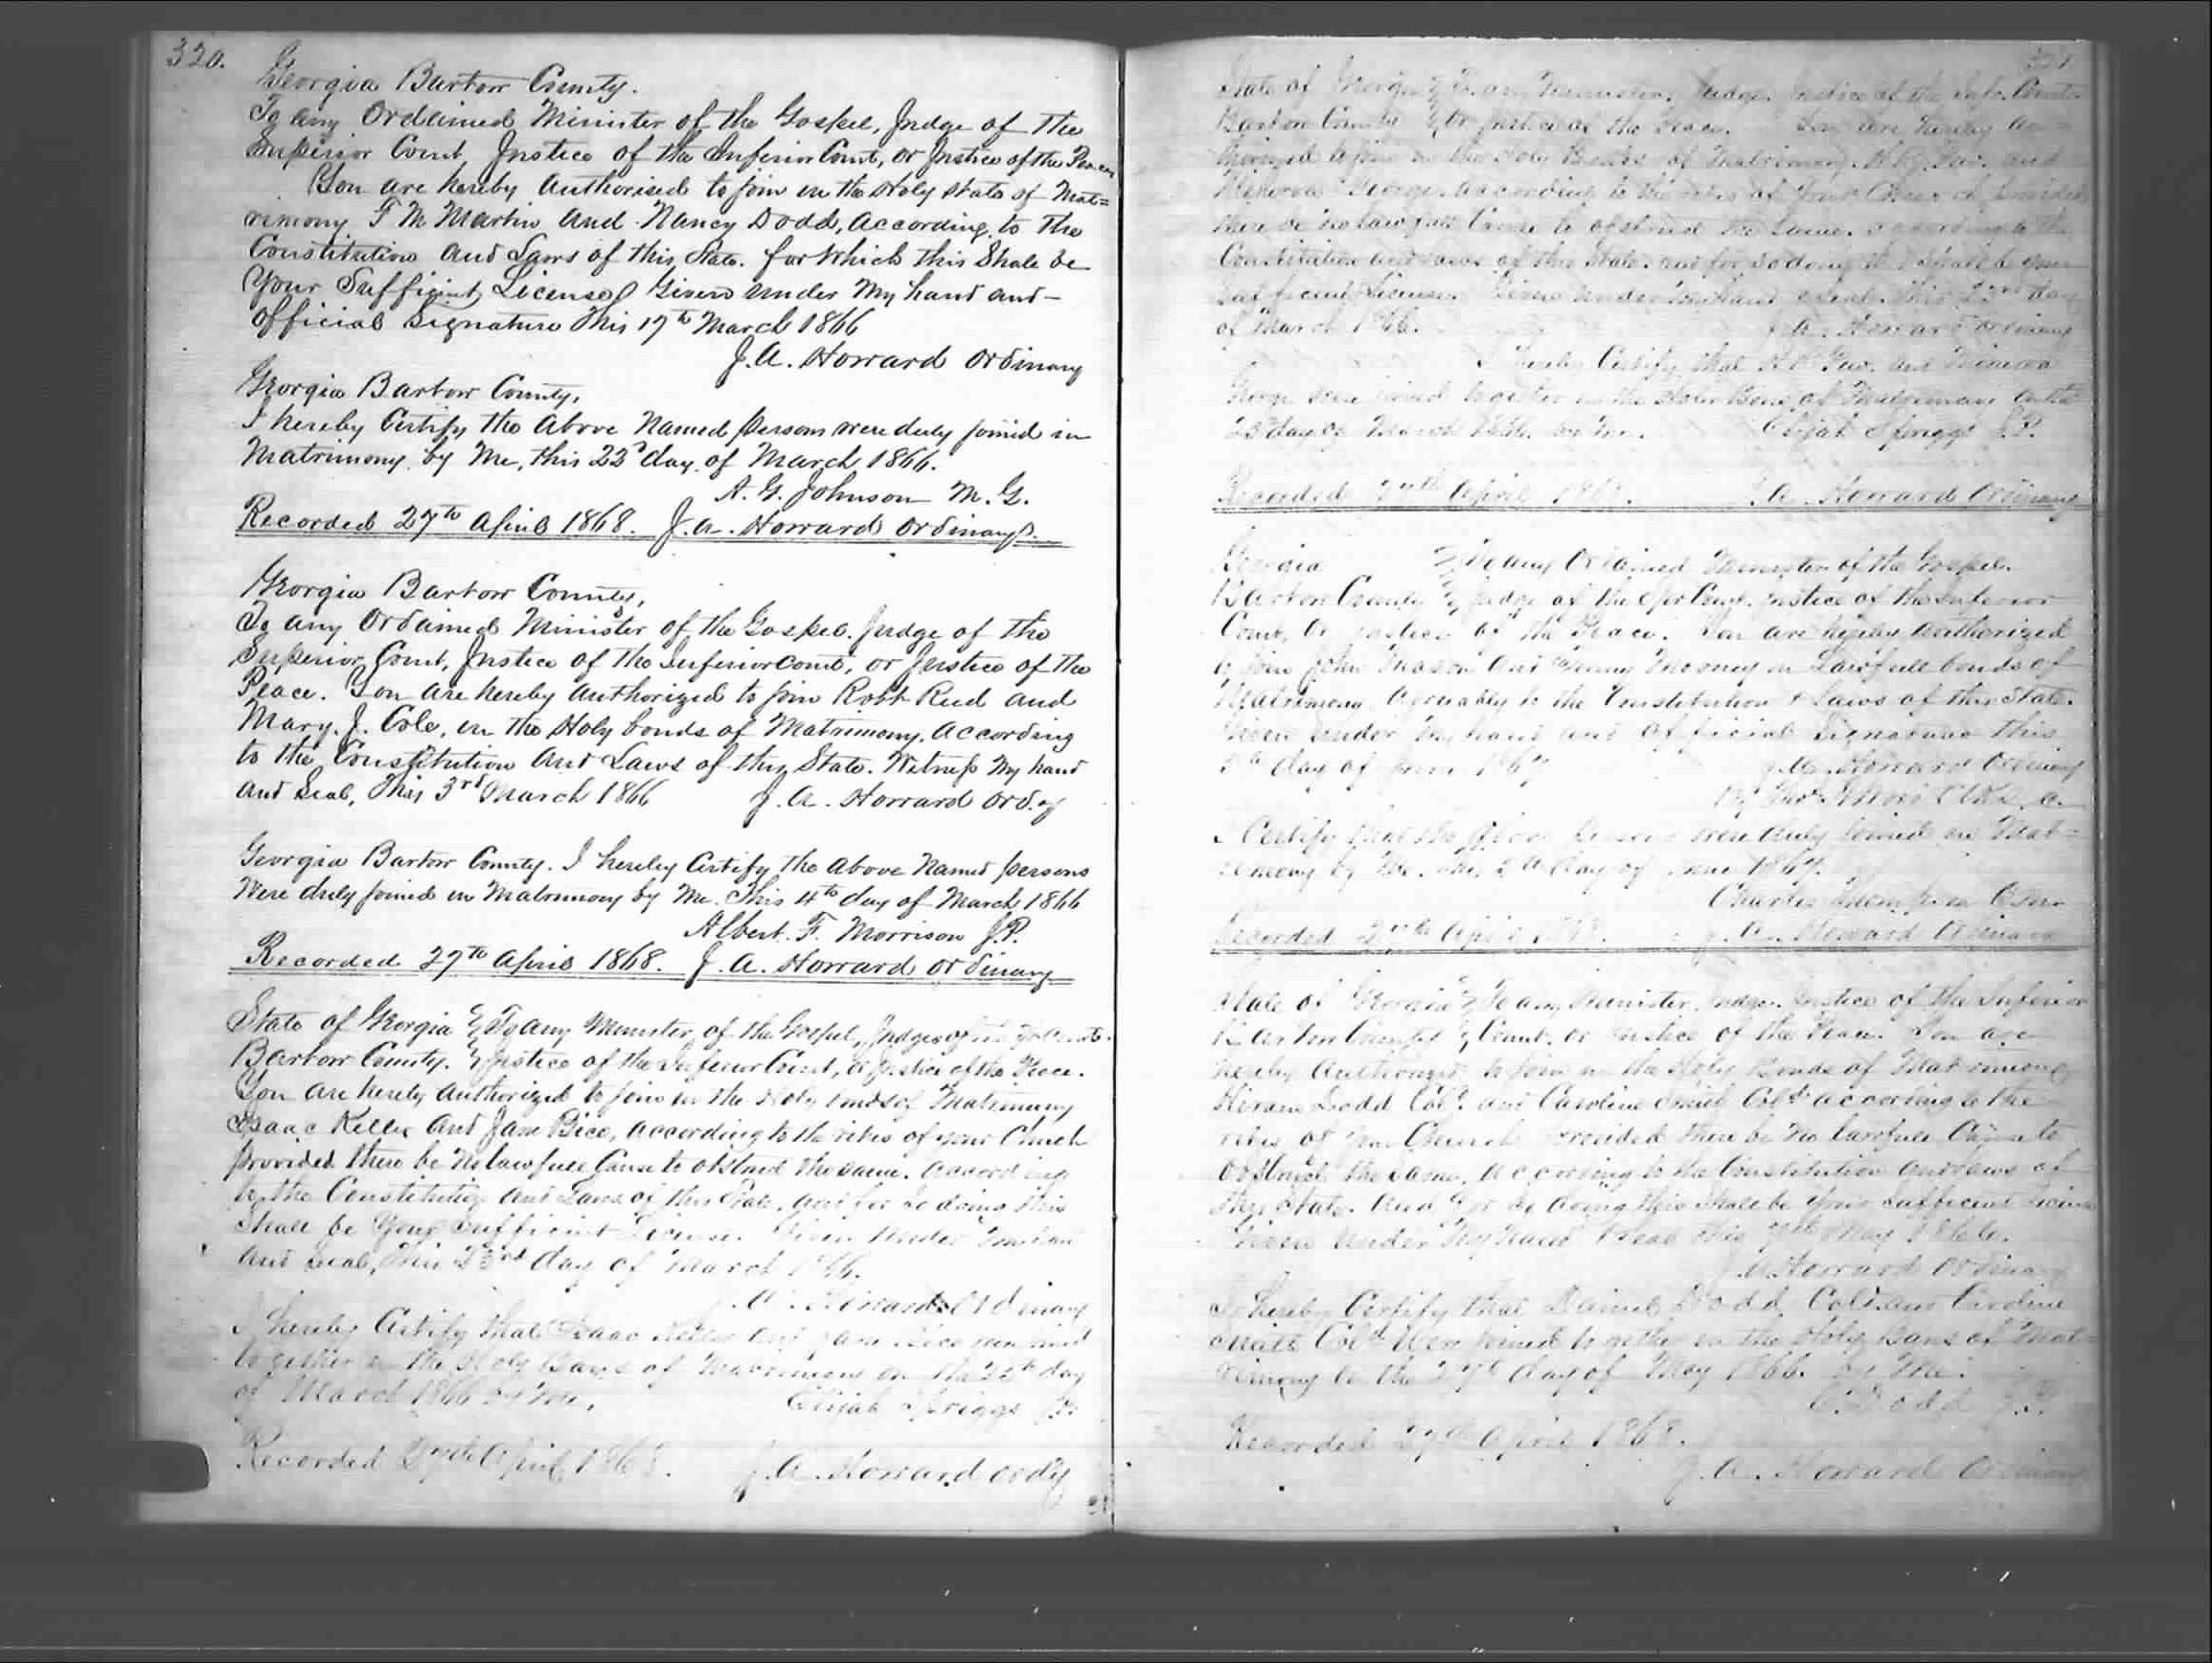 320.
Georgia Bartow County.
To any Ordained Minister of the Gospel, Judge of the
Superior Court, Justice of the Inferior Court, or Justice of the Peace
You are hereby Authorised to join in the Holy state of Mat=
rimony F M Martin and Nancy Dodd, according to the
Constitution and Laws of this State. for Which this Shall be
Your Sufficient License Given under My hand and
official Signature This 17th March 1866
J. A. Howard Ordinary
Georgia Bartow County,
I hereby Certify the above Named persons were duly joined in
Matrimony by Me, this 22d day of March 1866.
A. G. Johnson M. G.
Recorded 27th April 1868. J. A. Howard Ordinary
Georgia Bartow County,
To any Ordained Minister of the Gospel. Judge of the
Superior Court, Justice of the Inferior Court, or Justice of the
Peace. You are hereby authorized to join Robt Reed and
Mary. J. Cole, in the Holy bonds of Matrimony, According
to the Constitution and Laws of this State. Witness My hand
and Seal, This 3rd March 1866 J. A. Howard Ord.y
Georgia Bartow County. I hereby Certify the above Named persons
Were duly joined in Matrimony by Me. This 4th day of March 1866
Albert. F. Morrison J.P.
Recorded 27th April 1868. J. A. Howard Ordinary
State of Georgia To any Minister of the Gospel, Judge of
Bartow County. Justice of the Inferior Court, or Justice of the Peace.
You are hereby authorized to join in the Holy bonds of Matrimony
Isaac Keller and Jane Bice, according to the rites of your Church
provided there be No lawfull Cause to obstruct the same. according
to the Constitution and Laws of this State, and for so doing this
Shall be Your Sufficient License. Given under
and Seal, This 23rd day of March 1866.
J. A. Howard Ordinary
I hereby Certify that Isaac Keller and Jane Bice were
together in the Holy Bans of Matrimony on the day
of March 1866 by Me. Elijah Spriggs J.P.
Recorded 27th April 1868. J. A. Howard Ordy
321
State of Georgia To any Minister, Judge, Justice of the Infr. Court
Bartow County or Justice of the Peace. You are hereby au=
thorized to join in the Holy Bonds of Matrimony and
Minerva George according to the rites of Your Church provided
there be no lawfull Cause to obstruct the Same. according to the
Constitution and Laws of this State. and for so doing this shall be your
sufficient License. Given under my hand & seal. this 23rd day
of March 1866. J. A. Howard Ordinary
I hereby Certify that and Minerva
George were joined together in the Holy Bans of Matrimony on the
day of March 1866. by Me. Elijah Spriggs J.P.
Recorded 27th April 1868. J. A. Howard Ordinary
Georgia To any Ordained Minister of the Gospel.
Bartow County Judge of the Court. Justice of the Inferior
Court, or Justice of the Peace. You are hereby authorized
to join John Mason and Mooney in Lawfull bonds of
Matrimony to the Constitution & Laws of this State.
Given under my hand and Official Signature this
day of 1867 J. A. Howard Ordinary
By
I Certify that the above were duly joined in Mat=
rimony by Me. this day of 1867.
Charles
Recorded 27th April 1868. J. A. Howard Ordinary
State of Georgia To any Minister, Judge. Justice of the Inferior
Bartow County Court. or Justice of the Peace. You are
hereby Authorized to join in the Holy Bonds of Matrimony
Hiram Dodd Cold. and Caroline Smith Cold according to the
rites of your Church provided there be No lawfull Cause to
obstruct the same, according to the Constitution and Laws of
this State. And for so doing this Shall be Your sufficient License
Given under My hand & seal this May 1866.
J. A. Howard Ordinary
I hereby Certify that Dodd Cold. and Caroline
Cold Were joined together in the Holy Bans of Mat=
rimony on the 27th day of May 1866. by Me.
Dodd J.P.
Recorded 27th April 1868.
J. A. Howard Ordinary